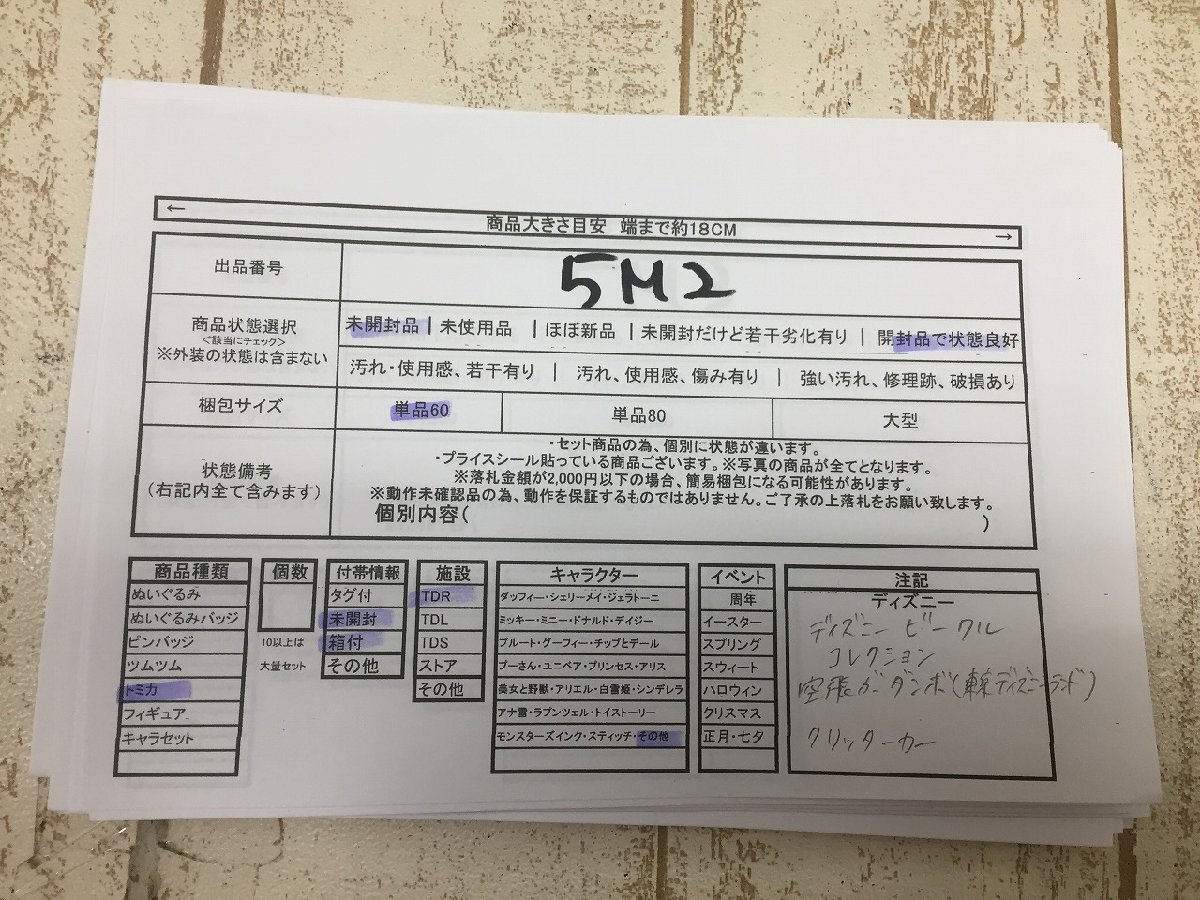 ←
商品大きさ目安 端まで約18CM
→
出品番号
5M2
商品状態選択
<該当にチェック>
※外装の状態は含まない
未開封品 | 未使用品 | ほぼ新品 | 未開封だけど若干劣化有り | 開封品で状態良好
汚れ・使用感、若干有り | 汚れ、使用感、傷み有り | 強い汚れ、修理跡、破損あり
梱包サイズ
単品60
単品80
大型
状態備考
(右記内全て含みます)
・セット商品の為、個別に状態が違います。
・プライスシール貼っている商品ございます。※写真の商品が全てとなります。
※落札金額が2,000円以下の場合、簡易梱包になる可能性があります。
※動作未確認品の為、動作を保証するものではありません。ご了承の上落札をお願い致します。
個別内容( )
商品種類
ぬいぐるみ
ぬいぐるみバッジ
ピンバッジ
ツムツム
トミカ
フィギュア
キャラセット
個数
10以上は
大量セット
付帯情報
タグ付
未開封
箱付
その他
施設
TDR
TDL
TDS
ストア
その他
キャラクター
ダッフィー・シェリーメイ・ジェラトーニ
ミッキー・ミニー・ドナルド・デイジー
プルート・グーフィー・チップとデール
プーさん・ユニベア・プリンセス・アリス
美女と野獣・アリエル・白雪姫・シンデレラ
アナ雪・ラプンツェル・トイストーリー
モンスターズインク・スティッチ・その他
イベント
周年
イースター
スプリング
スウィート
ハロウィン
クリスマス
正月・七夕
注記
ディズニー
ディズニー ビークル
コレクション
ダンボ(東京ディズニーランド)
クリッターカー